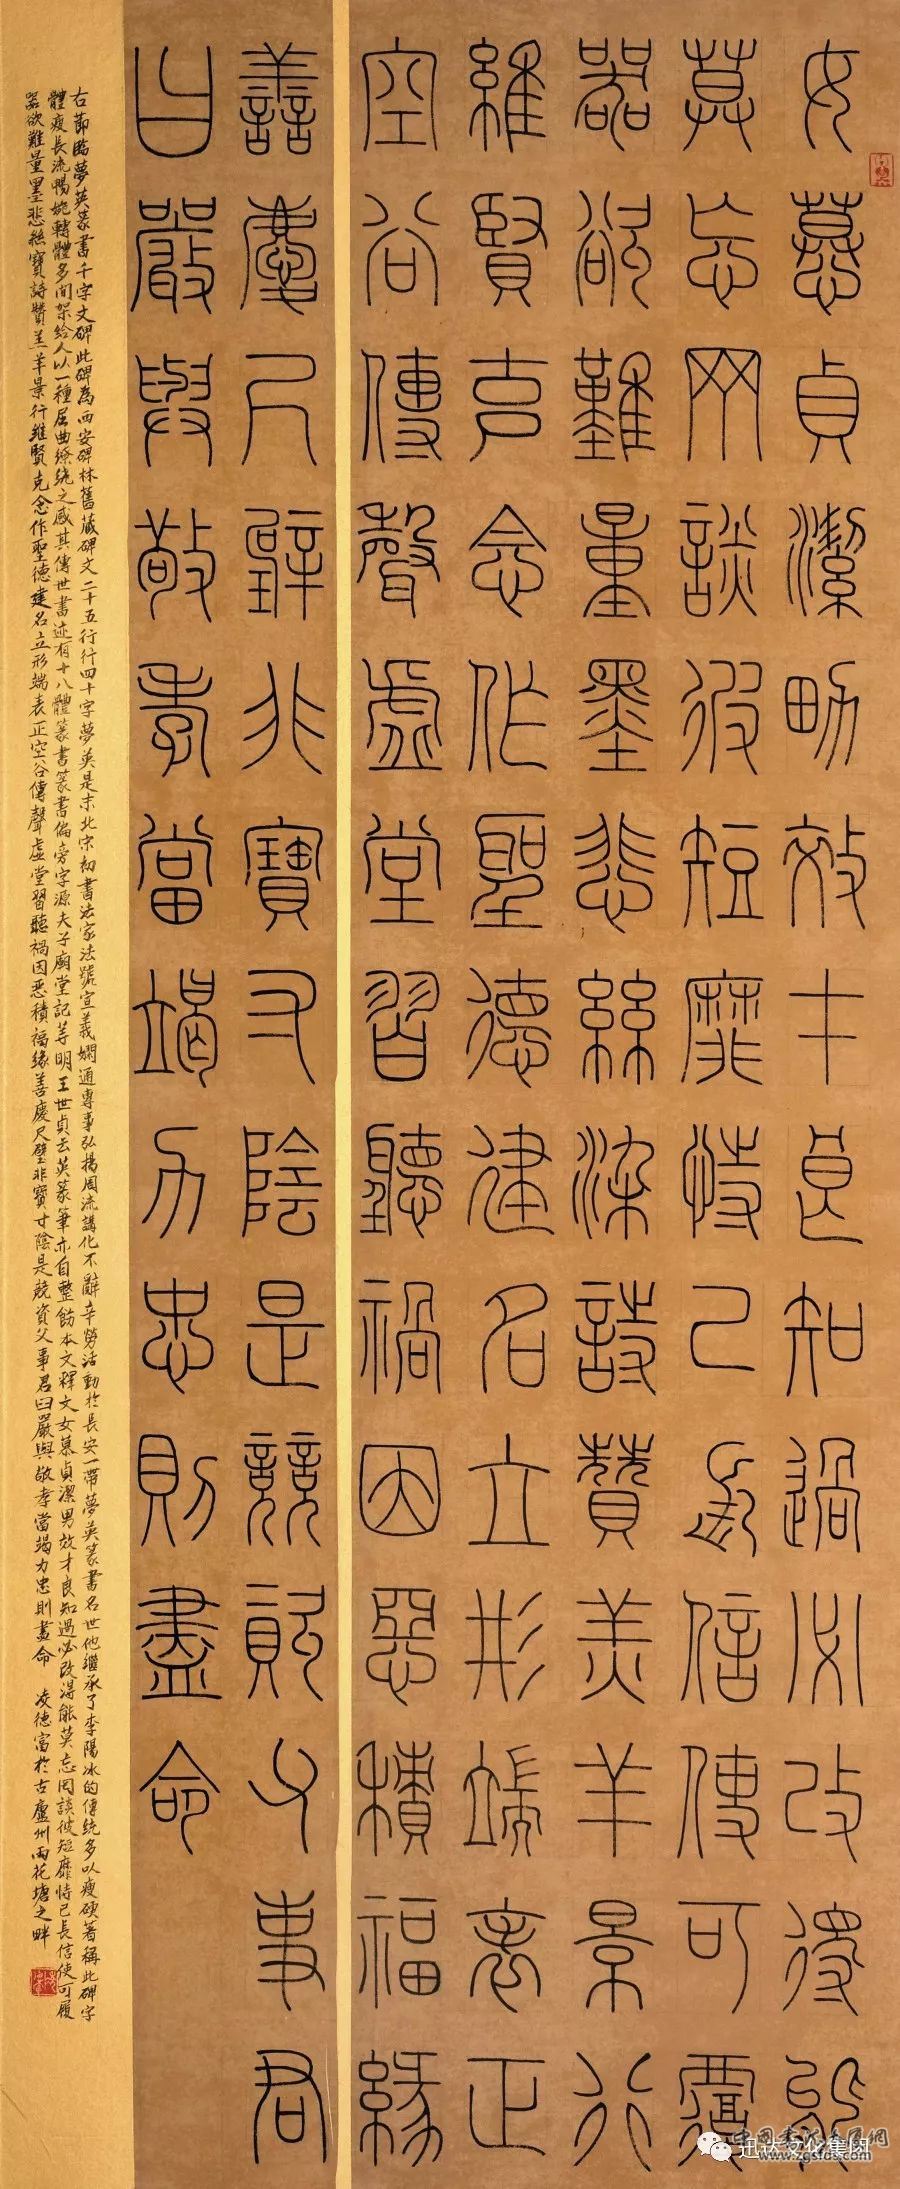 女慕貞潔男效才良知過必改得能
莫忘罔談彼短靡恃己長信使可覆
器欲難量墨悲絲染詩贊羔羊景行
維賢克念作聖德建名立形端表正
空谷傳聲虛堂習聽禍因惡積福緣
善慶尺璧非寶寸陰是競資父事君
曰嚴與敬孝當竭力忠則盡命
右節臨夢英篆書千字文碑此碑為西安碑林舊藏碑文二十五行行四十字夢英是末北宋初書法家法號宣義嫻通專事弘揚周流講化不辭辛勞活動於長安一帶夢英篆書名世他繼承了李陽冰的傳統多以瘦硬著稱此碑字
體瘦長流暢婉轉體多間架給人以一種屈曲繚繞之感其傳世書迹有十八體篆書篆書偏旁字源夫子廟堂記等明王世貞云英篆筆亦自整飭本文釋文女慕貞潔男效才良知過必改得能莫忘罔談彼短靡恃己長信使可履
器欲難量墨悲絲寶詩贊羔羊景行維賢克念作聖德建名立形端表正空谷傳聲虛堂習聽禍因惡積福緣善慶尺璧非寶寸陰是競資父事君曰嚴與敬孝當竭力忠則盡命 凌德富於古廬州雨花塘之畔
迅达文化集团
www.zgsfds.com